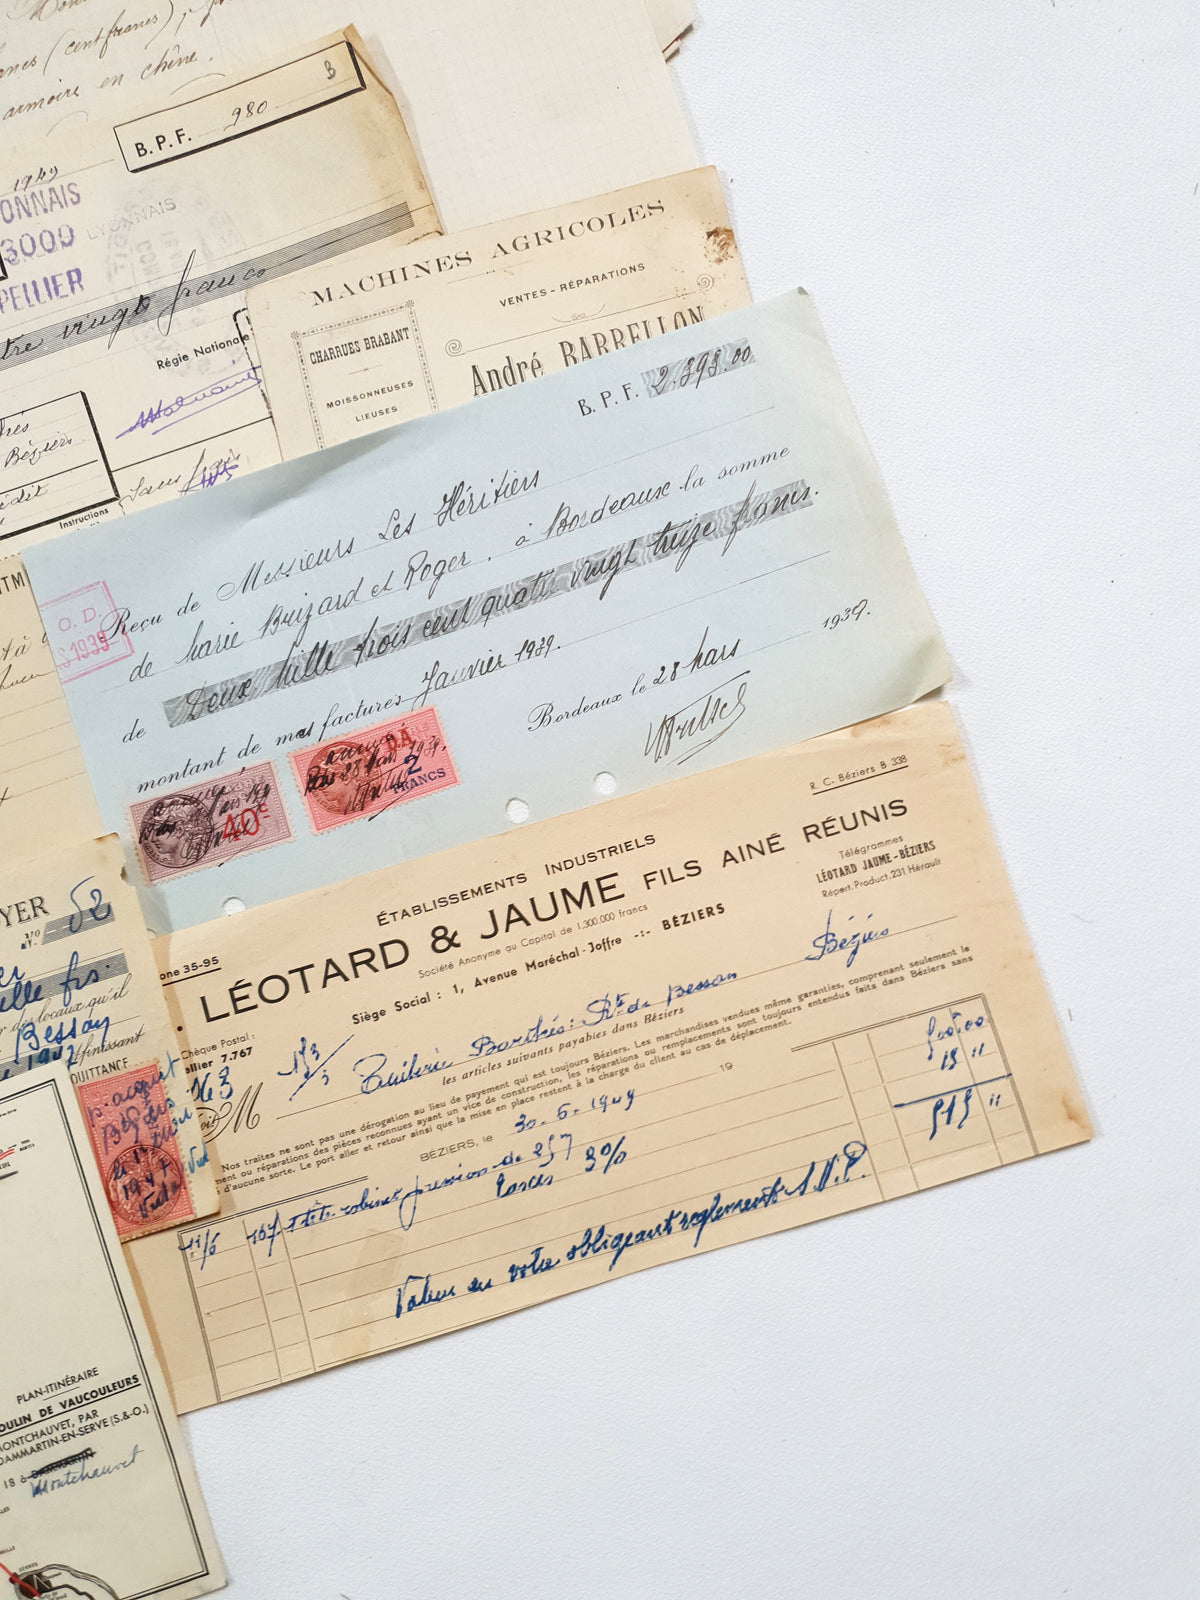 armoire en chêne.
B.P.F. 980
B
1949
ONNAIS
LYONNAIS
3000
PELLIER
vingt francs
Régie Nationale
Béziers
Sans frais
Instructions
MACHINES AGRICOLES
VENTES - RÉPARATIONS
André BARRELLON
CHARRUES BRABANT
MOISSONNEUSES
LIEUSES
B. P. F. 2.393.00
Reçu de Messieurs Les Héritiers
de Marie Brizard et Roger, à Bordeaux la somme
de Deux mille trois cent quatre vingt treize francs.
montant de mes factures Janvier 1939.
Bordeaux le 28 Mars 1939.
O. D.
1939
40c
2
FRANCS
R. C. Béziers B 338
ÉTABLISSEMENTS INDUSTRIELS
LÉOTARD & JAUME FILS AINÉ RÉUNIS
Société Anonyme au Capital de 1.300.000 francs
Siège Social : 1, Avenue Maréchal-Joffre -:- BÉZIERS
Télégrammes
LÉOTARD JAUME-BÉZIERS
Répert. Product. 231 Hérault
one 35-95
Chèque Postal :
ellier 7.767
Doit M Tuilerie Barthés: Rte de Bessan Béziers
les articles suivants payables dans Béziers
Nos traites ne sont pas une dérogation au lieu de payement qui est toujours Béziers. Les marchandises vendues même garanties, comprenant seulement le
ment ou réparations des pièces reconnues ayant un vice de construction, les réparations ou remplacements sont toujours entendus faits dans Béziers sans
d'aucune sorte. Le port aller et retour ainsi que la mise en place restent à la charge du client au cas de déplacement.
BÉZIERS, le 30.6.1949 19
11/6 167 1 tête robinet pression de 257 500.00
Taxes 3% 15 "
515 "
Valeur en votre obligeant règlement S.V.P.
YER
No 52
mille frs.
des locaux qu'il
Bessan
finissant
QUITTANCE
p. acquit
PLAN-ITINÉRAIRE
OULIN DE VAUCOULEURS
MONTCHAUVET, PAR
DAMMARTIN-EN-SERVE (S.&-O.)
Montchauvet